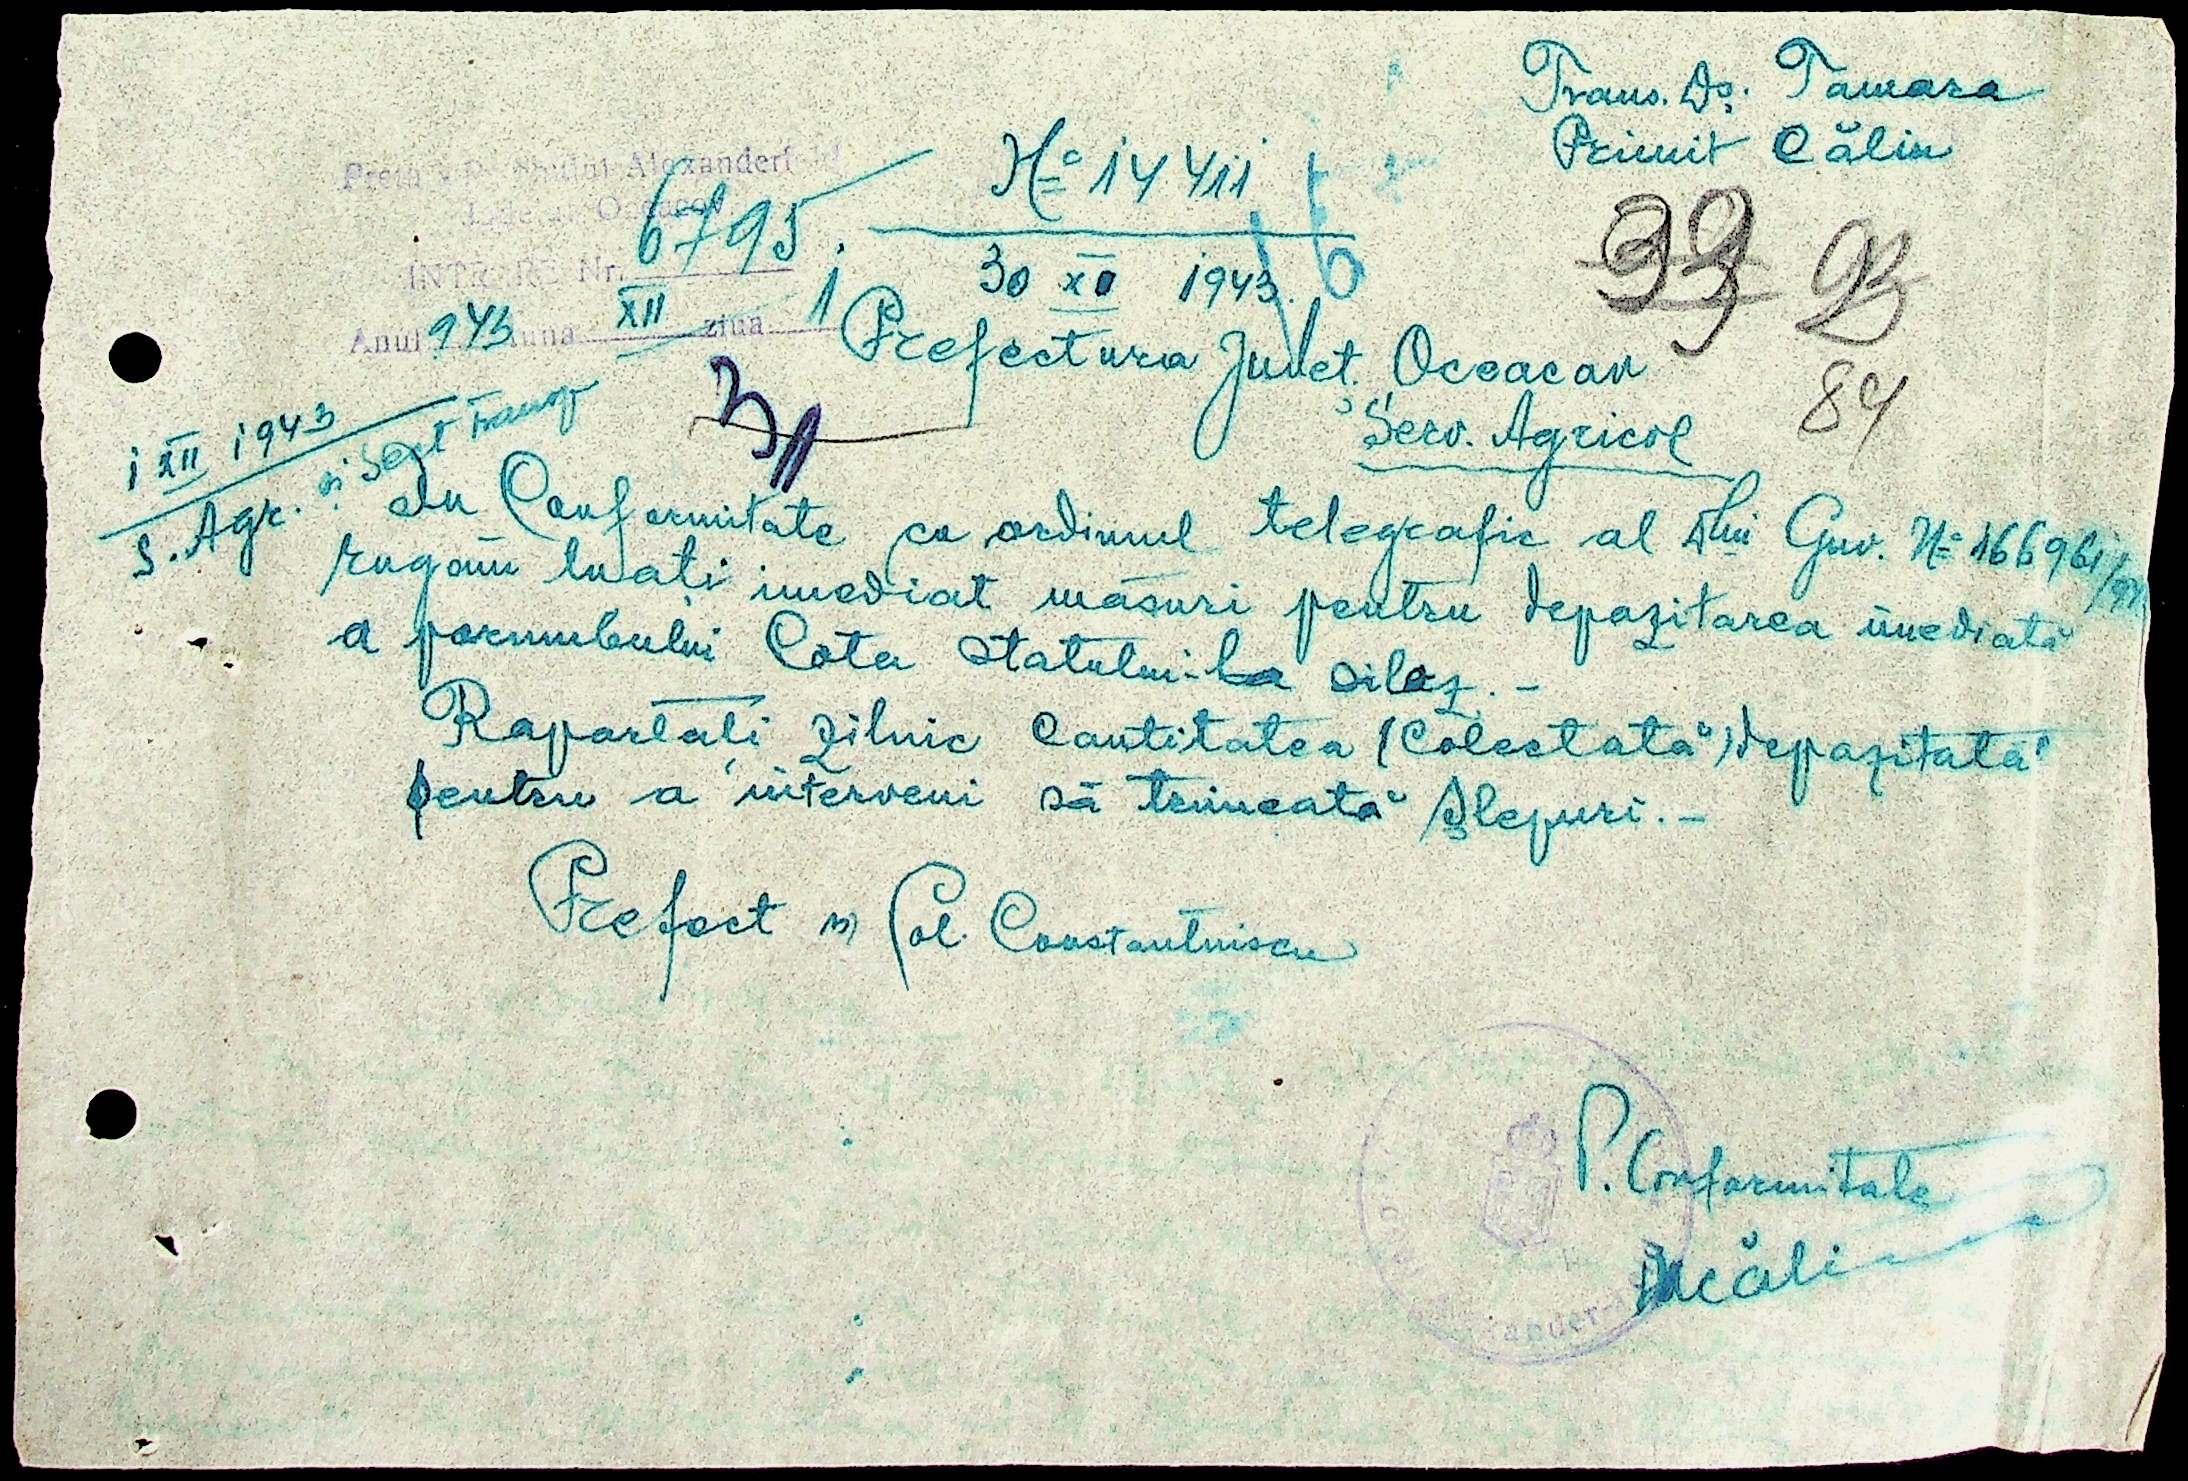 Trans. Dș. Tamara
Primit Călin
Nº 14411
30 XI 1943
Pretura Raionului Alexanderfeld
Județul Oceacov
INTRARE Nr. 6795
Anul 943 luna XII ziua 1
93
84
Prefectura Județ. Oceacov
Serv. Agricol
1 XII 1943
S. Agr. și
În Conformitate cu ordinul telegrafic al Dlui Guv. Nº 166961/
rugăm luați imediat măsuri pentru depozitarea imediată
a porumbului Cota Statului-la siloz.-
Raportați zilnic Cantitatea (Colectată) depozitată
pentru a interveni să trimeată Șlepuri.-
Prefect ss) Col. Constantinescu
P. Conformitate
Călin